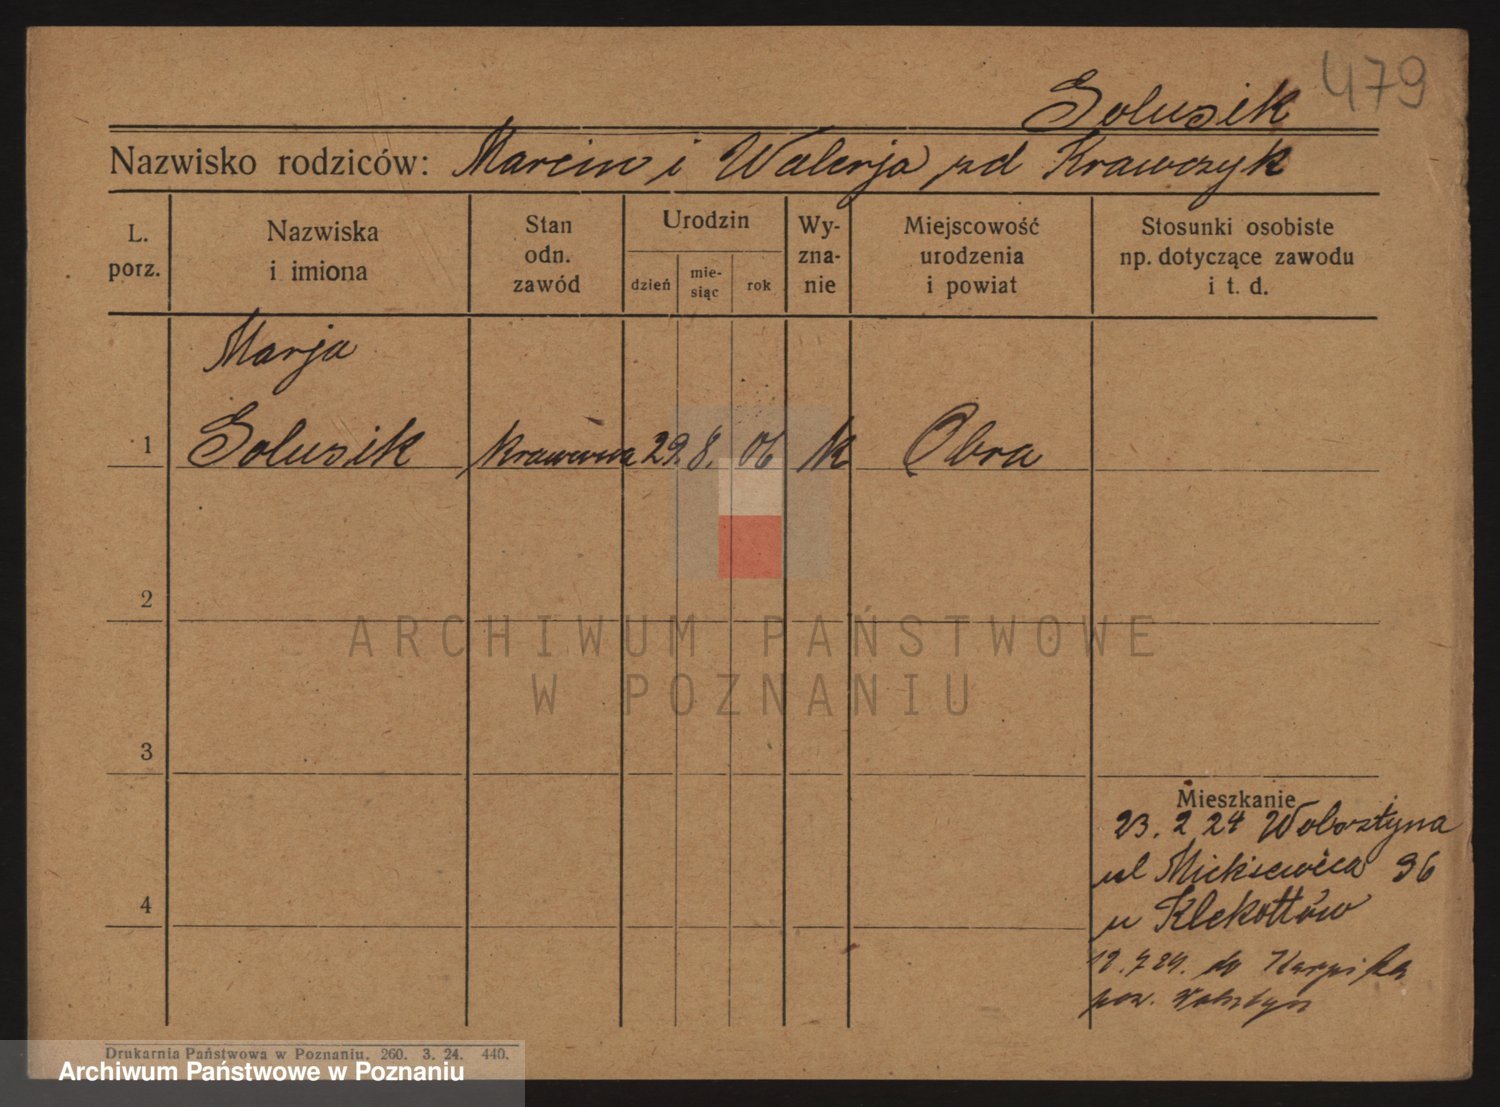 479
Golusik
Nazwisko rodziców: Marcin i Walerja zd Krawczyk
L. porz.
Nazwiska i imiona
Stan odn. zawód
Urodzin
dzień
mie-siąc
rok
Wy-zna-nie
Miejscowość urodzenia i powiat
Stosunki osobiste np. dotyczące zawodu i t. d.
Marja
1 Golusik krawcowa 29. 8. 06 k Obra
2
ARCHIWUM PAŃSTWOWE
W POZNANIU
3
Mieszkanie
23. 2 24 Wolsztyna
ul Mickiewicza 36
4
u Klekottów
do
pow. Wolsztyn
Drukarnia Państwowa w Poznaniu. 260. 3. 24. 440.
Archiwum Państwowe w Poznaniu